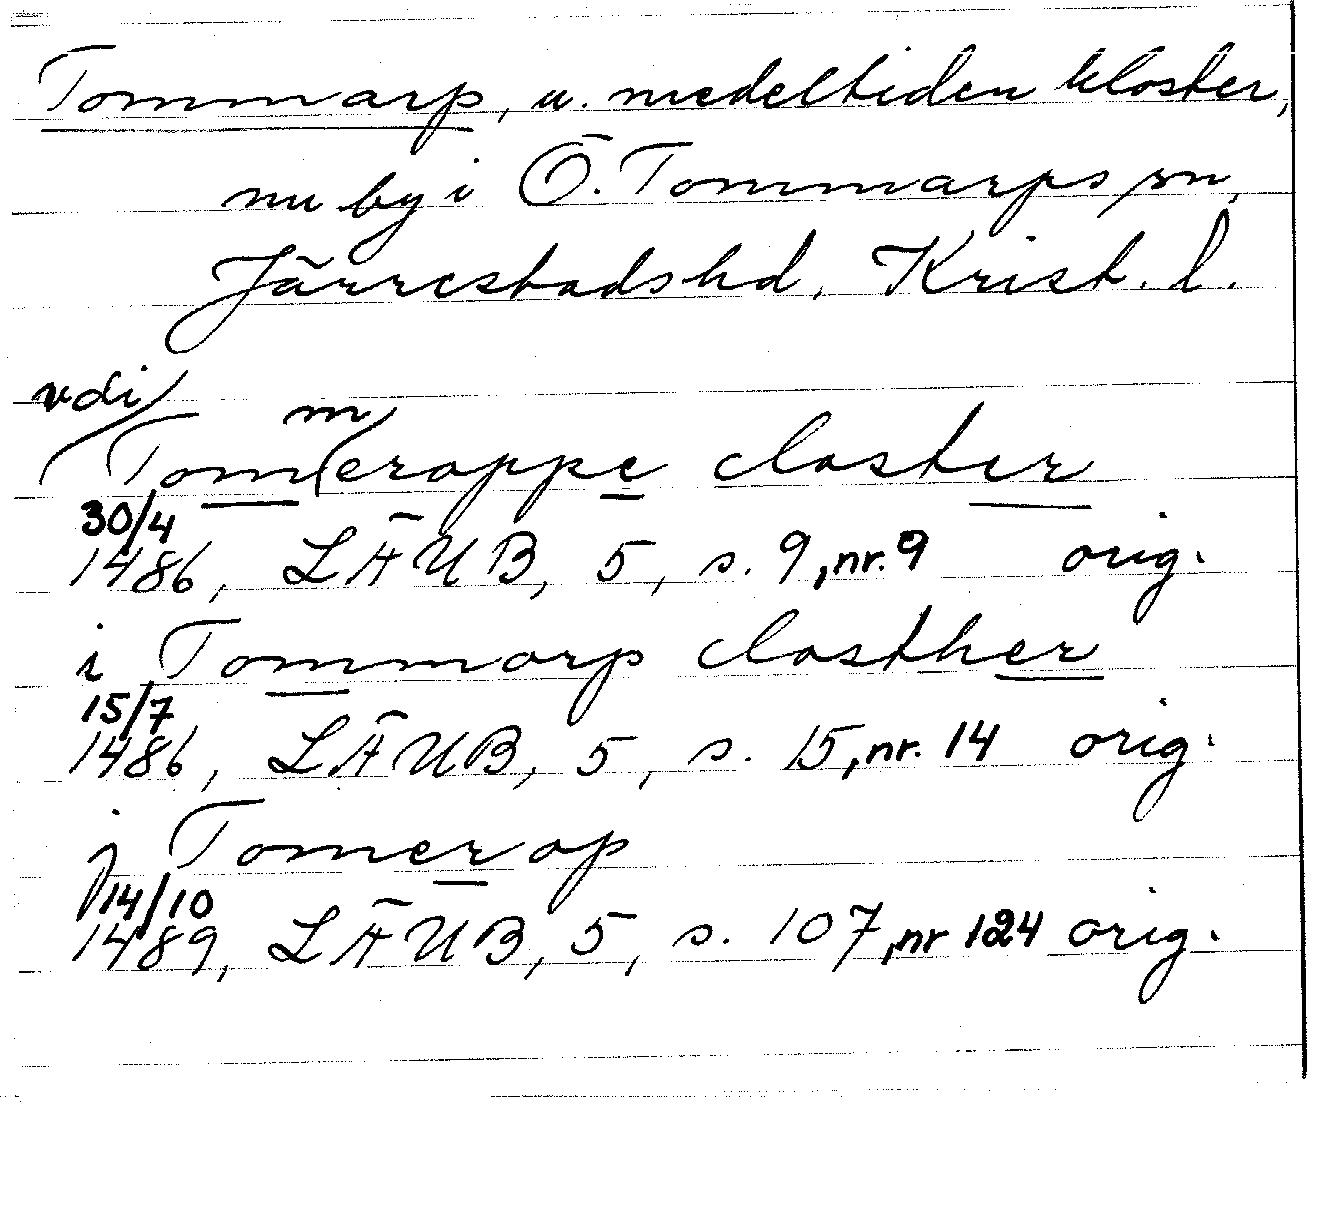 Tommarp, u. medeltiden kloster,
nu by i Ö. Tommarps sn,
Järrestads hd, Krist. l.
vdi/
m/
Tom(eroppe closter
30/4
1486, LÄUB, 5, s. 9, nr. 9 orig.
i Tommorp closther
15/7
1486, LÄUB, 5, s. 15, nr. 14 orig.
j Tomerop
14/10
1489, LÄUB, 5, s. 107, nr 124 orig.